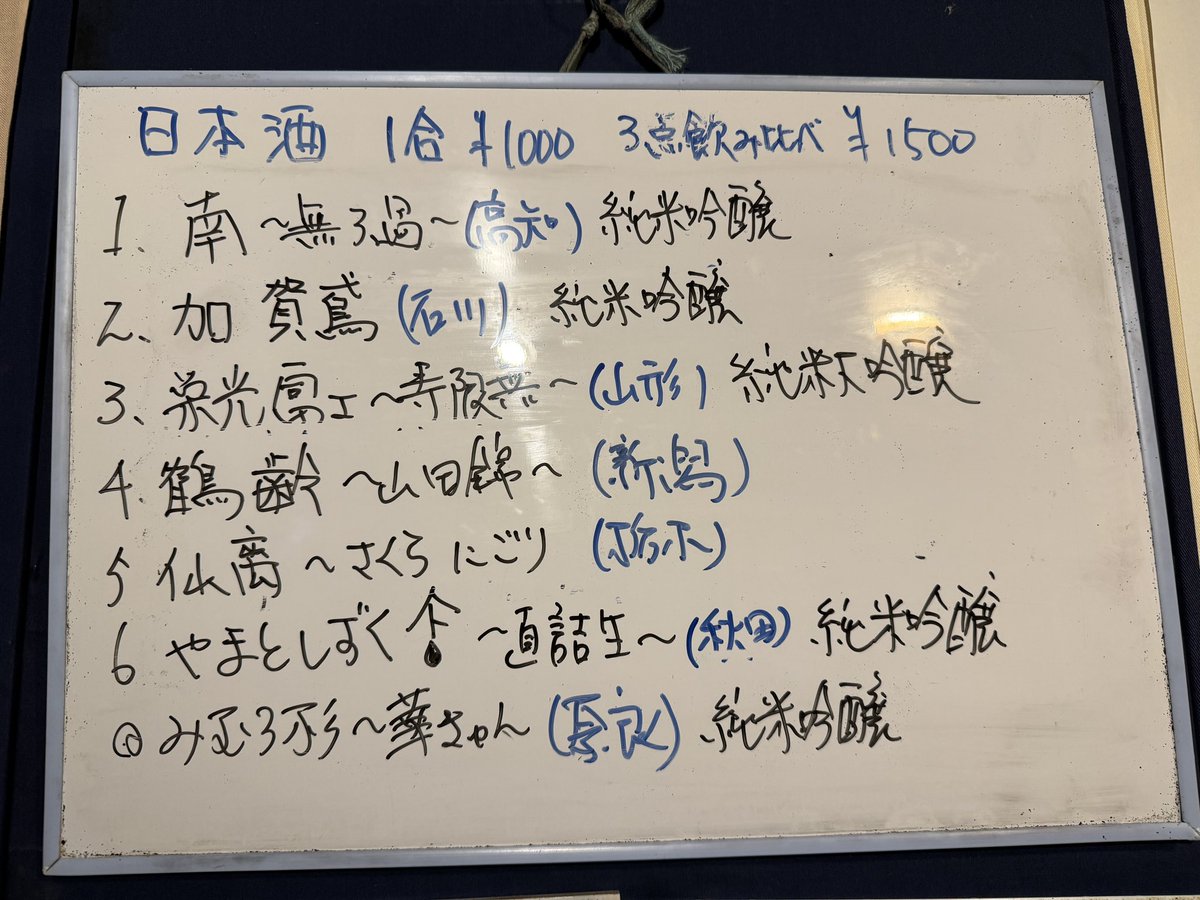 日本酒 1合 ¥1000 3点飲み比べ ¥1500
1、南 〜無ろ過〜 (高知) 純米吟醸
2、加賀鳶 (石川) 純米吟醸
3、栄光冨士 〜寿限無〜 (山形) 純米大吟醸
4. 鶴齢 〜山田錦〜 (新潟)
5 仙禽 〜さくら にごり (栃木)
6 やまとしずく 〜直詰生〜 (秋田) 純米吟醸
みむろ杉 〜華きゃん (奈良) 純米吟醸